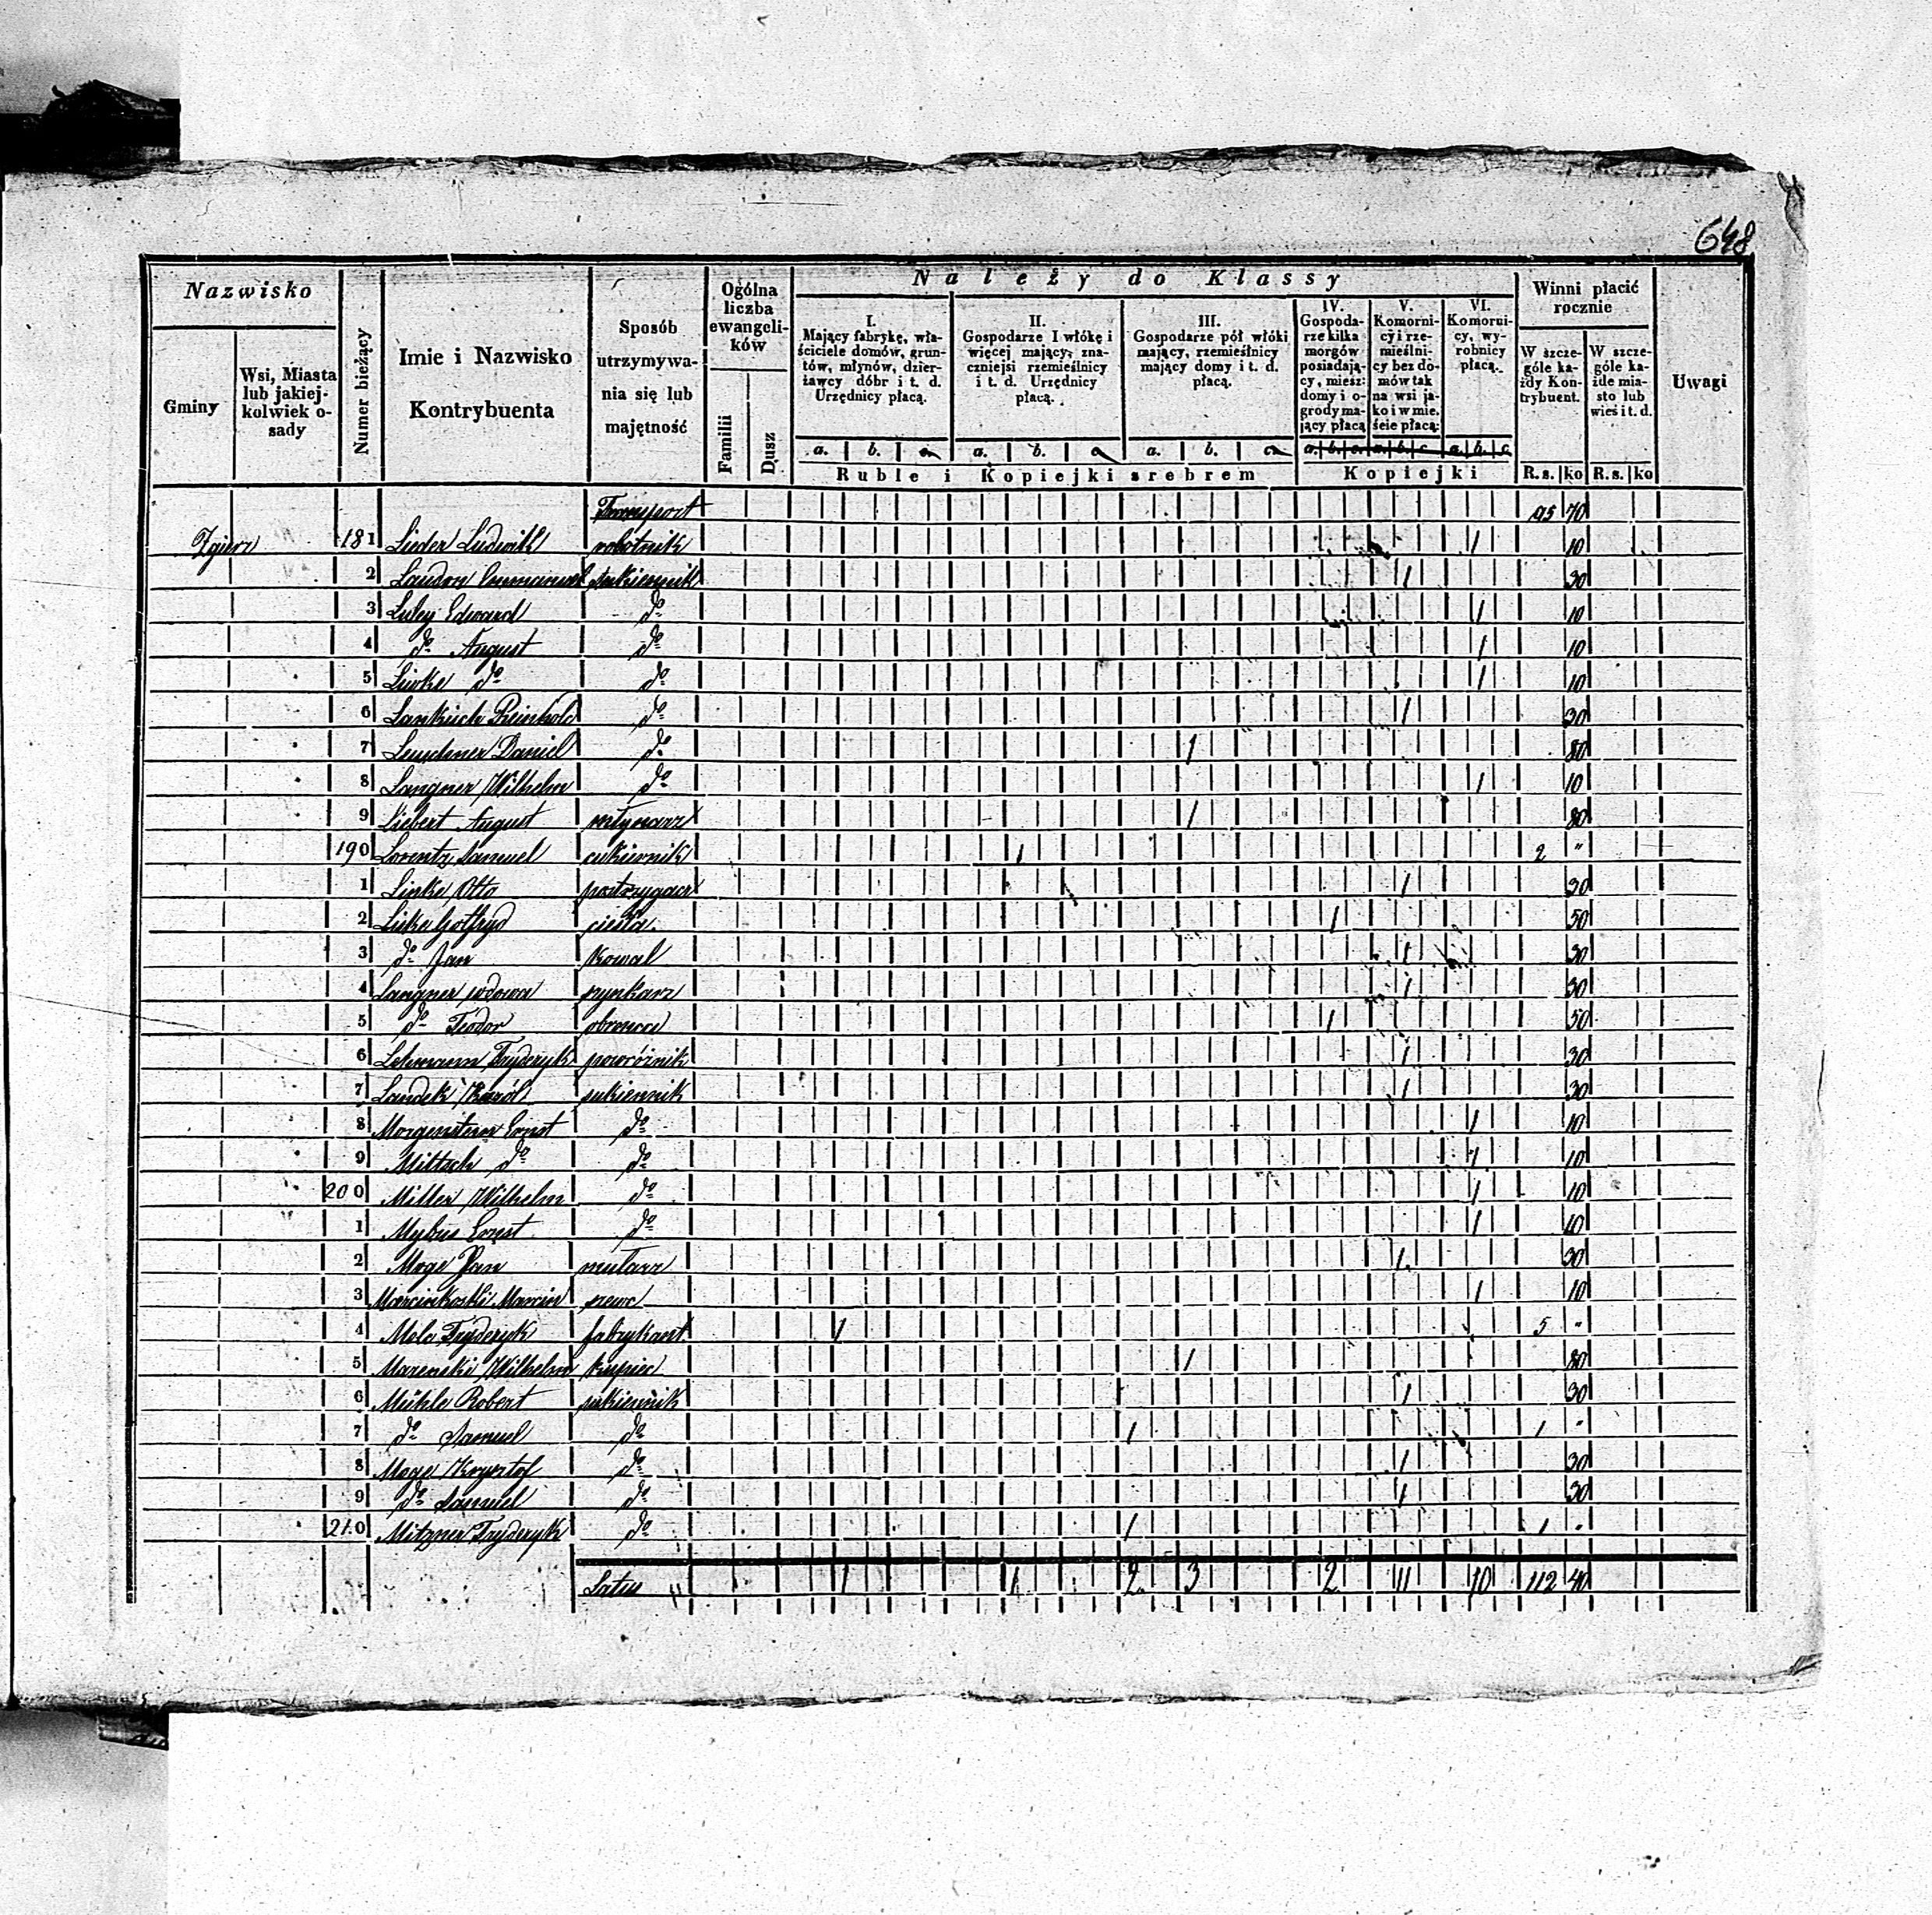 648
Nazwisko
Gminy
Wsi, Miasta lub jakiej-kolwiek o-sady
Numer bieżący
Imie i Nazwisko Kontrybuenta
Sposób utrzymywa-nia się lub majętność
Ogólna liczba ewangeli-ków
Familii
Dusz
Należy do Klassy
I. Mający fabrykę, wła-ściciele domów, grun-tów, młynów, dzier-żawcy dóbr i t. d. Urzędnicy płacą.
II. Gospodarze I włókę i więcej mający, zna-czniejsi rzemieślnicy i t. d. Urzędnicy płacą.
III. Gospodarze pół włóki mający, rzemieślnicy mający domy i t. d. płacą.
IV. Gospoda-rze kilka morgów posiadają-cy, miesz: domy i o-grody ma-jący płacą
V. Komorni-cy i rze-mieślni-cy bez do-mów tak na wsi ja-ko i w mie-ście płacą:
VI. Komorni-cy, wy-robnicy płacą.
a. b. c. a. b. c. a. b. c. a. b. c. a. b. c. a. b. c.
Ruble i Kopiejki srebrem
Kopiejki
Winni płacić rocznie
W szcze-góle ka-żdy Kon-trybuent.
W szcze-góle ka-żde mia-sto lub wieś i t. d.
R.s. ko R.s. ko
Uwagi
Transport 95 70
Zgierz 181 Lieder Ludwik robotnik 1 10
2 Laudon Emmanuel sukiennik 1 30
3 Luley Edward do 1 10
4 do August do 1 10
5 Linke do do 1 10
6 Lankisch Reinhold do 1 30
7 Leuchner Daniel do 1 80
8 Langner Wilhelm do 1 10
9 Liebert August młynarz 1 80
190 Lorentz Samuel cukiernik 1 2 "
1 Linke Otto postrzygacz 1 30
2 Liske Gotfryd cieśla 1 50
3 do Jan kowal 1 30
4 Langner wdowa szynkarz 1 30
5 do Teodor 1 50
6 Lehmann Fryderyk powróźnik 1 30
7 Landek Karól sukiennik 1 30
8 Morgenstern Ernst do 1 10
9 Miltsch do do 1 10
200 Miller Wilhelm do 1 10
1 Mybus Ernst do 1 10
2 Moge Jan mularz 1 30
3 Marcinkoski Marcin szewc 1 10
4 Fryderyk fabrykant 1 5 "
5 Marenski Wilhelm kupiec 1 80
6 Mühle Robert sukiennik 1 30
7 do Samuel do 1 1 "
8 Moge Krysztof do 1 30
9 do Samuel do 1 30
210 Mitzner Fryderyk do 1 1 "
Latus " 1 1 2 3 2 11 10 112 40